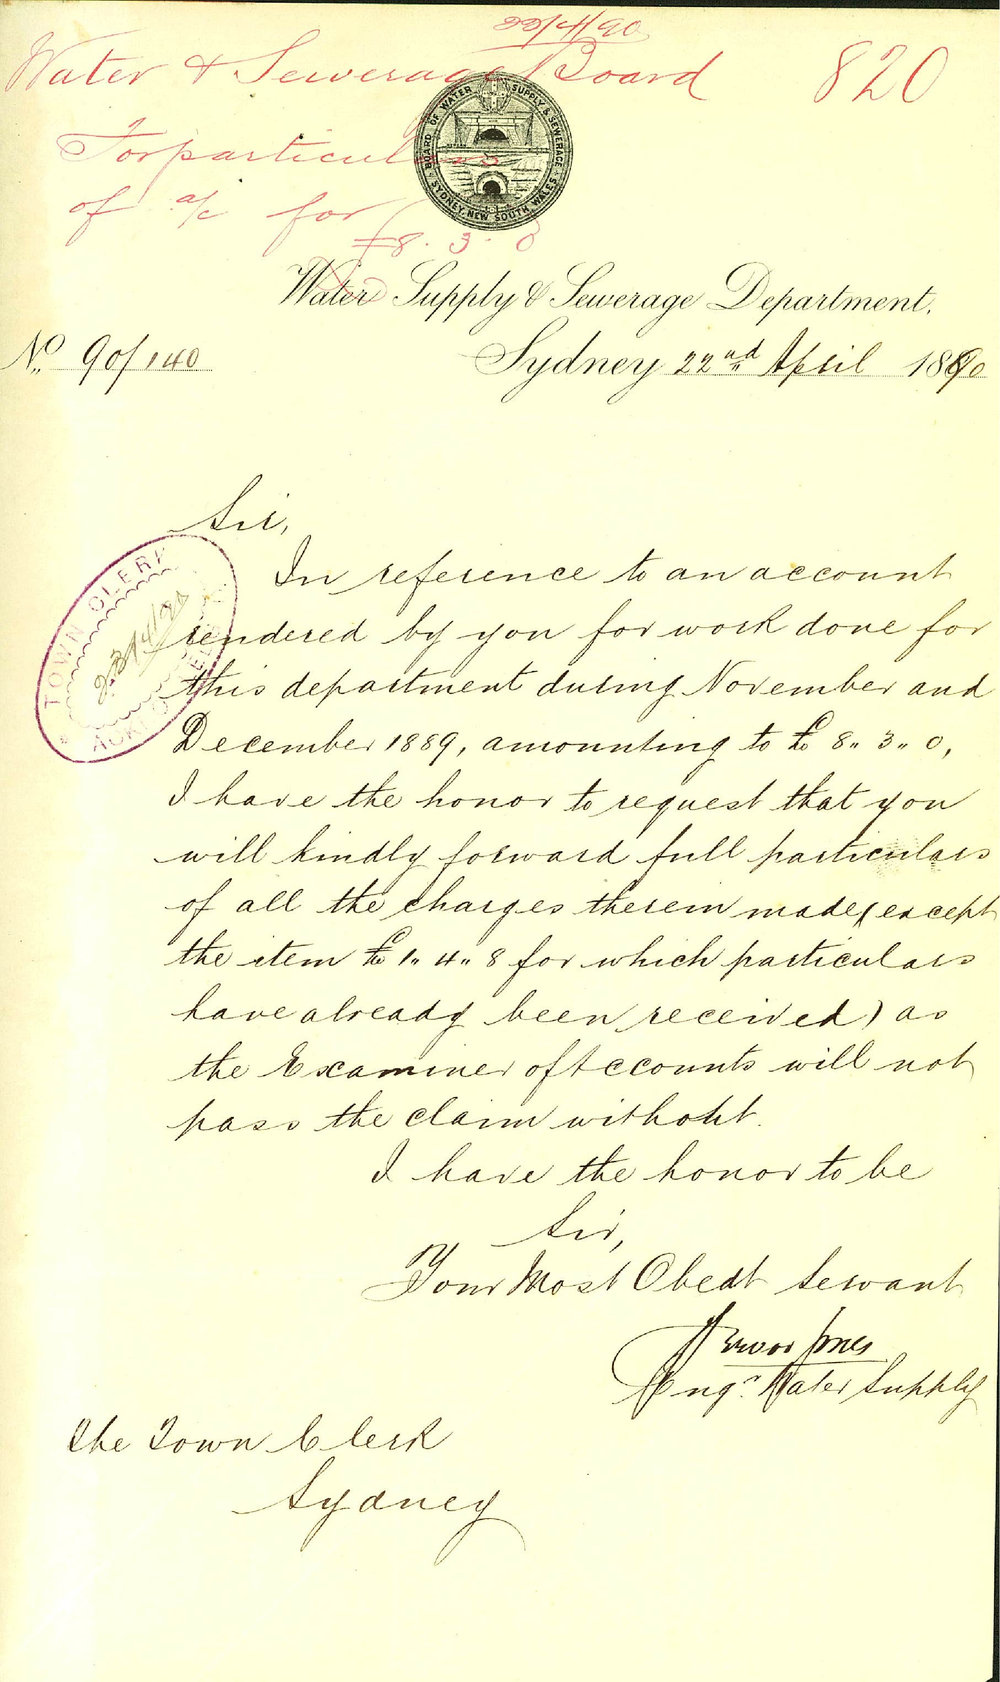 22/4/90
Water & Sewerage Board 820
For particulars
of a/c for
£8.3.0
BOARD OF WATER SUPPLY & SEWERAGE
SYDNEY, NEW SOUTH WALES
Water Supply & Sewerage Department.
No. 90/140 Sydney 22nd April 1890
Sir,
In reference to an account
rendered by you for work done for
this department during November and
December 1889, amounting to £8" 3" 0,
I have the honor to request that you
will kindly forward full particulars
of all the charges therein made (except
the item £1" 4" 8 for which particulars
have already been received) as
the Examiner of Accounts will not
pass the claim without.
I have the honor to be
Sir,
Your Most Obedt Servant
Trevor Jones
Engr. Water Supply
The Town Clerk
Sydney
TOWN CLERK
23/4/90